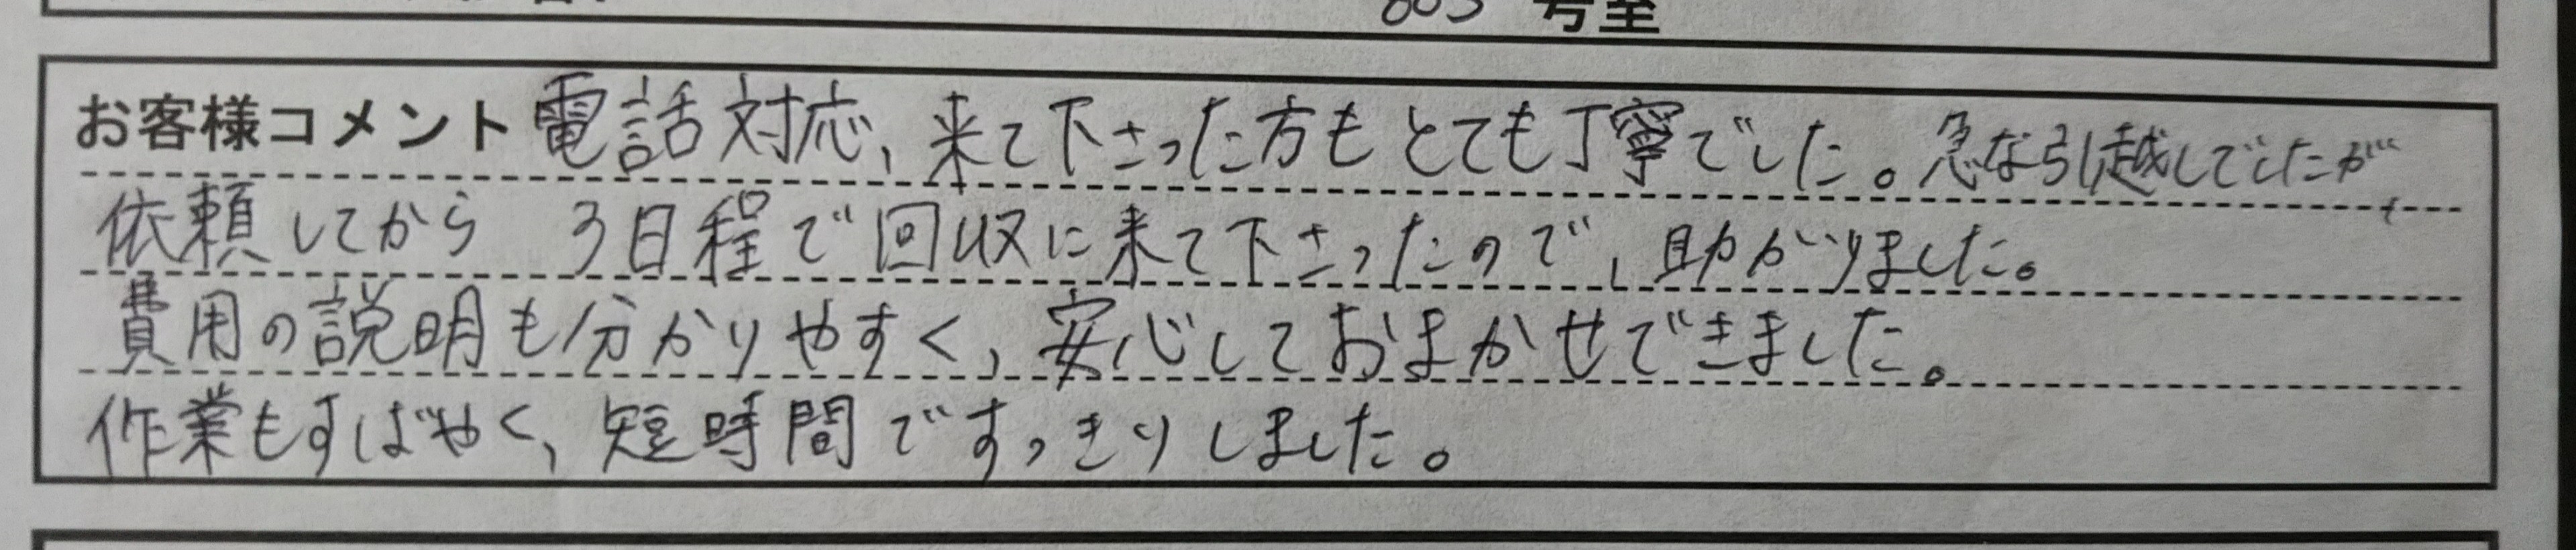 号室
お客様コメント 電話対応、来て下さった方もとても丁寧でした。急な引越しでしたが、
依頼してから 3日程で回収に来て下さったので、助かりました。
費用の説明も分かりやすく、安心しておまかせできました。
作業もすばやく、短時間ですっきりしました。